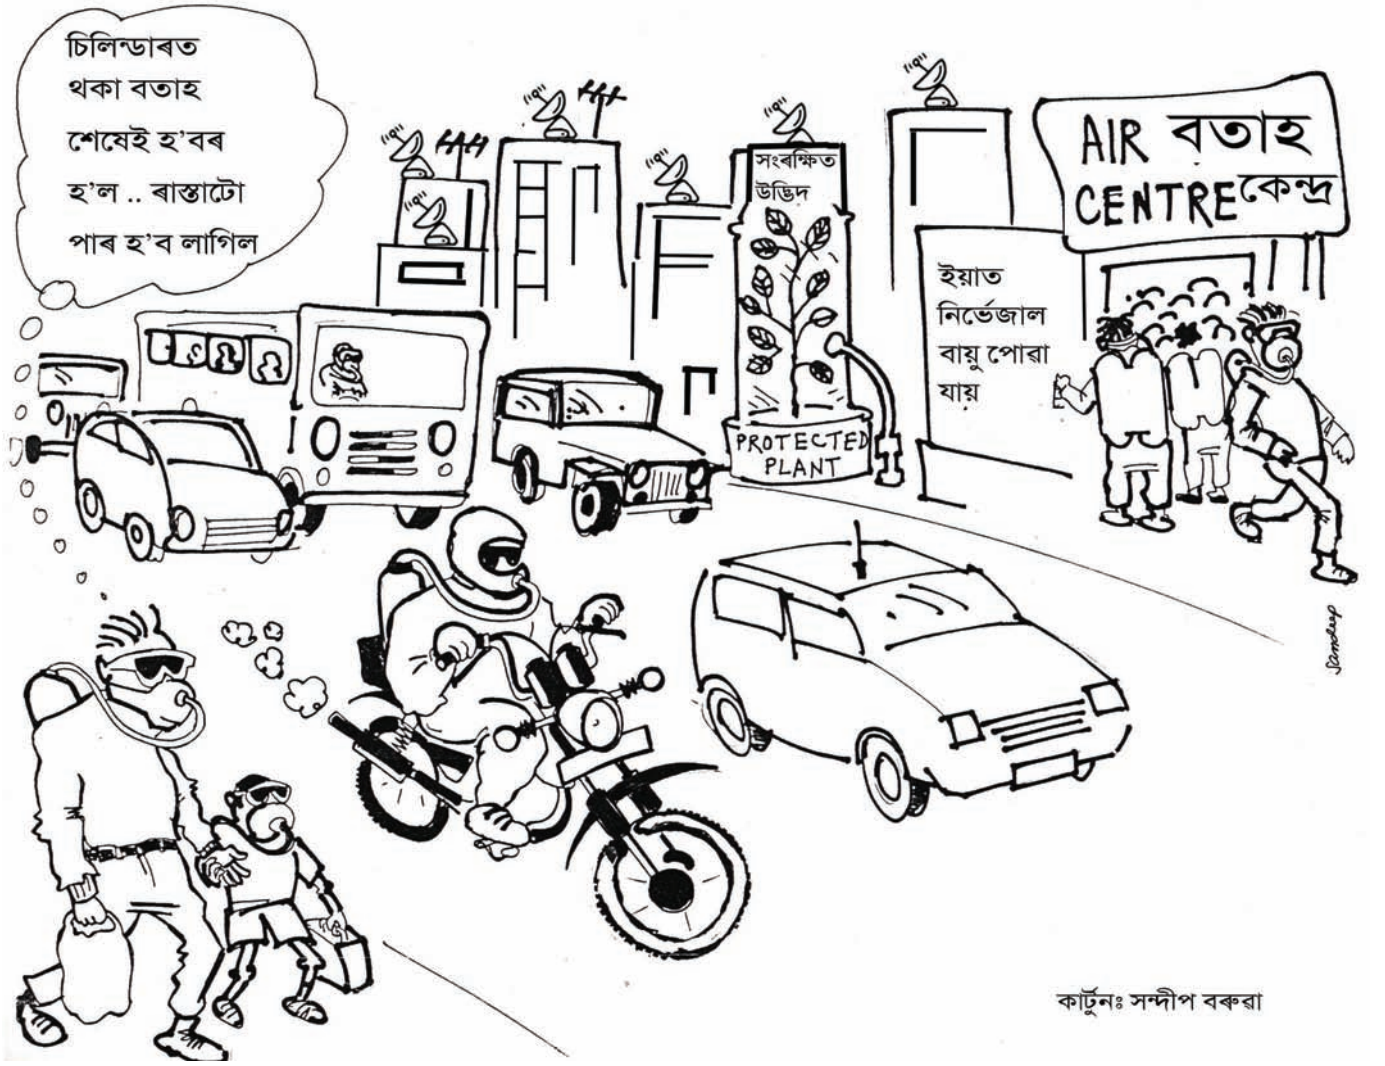 চিলিন্ডাৰত
থকা বতাহ
শেষেই হ’বৰ
হ’ল .. ৰাস্তাটো
পাৰ হ’ব লাগিল
সংৰক্ষিত
উদ্ভিদ
PROTECTED
PLANT
AIR বতাহ
CENTRE কেন্দ্ৰ
ইয়াত
নিৰ্ভেজাল
বায়ু পোৱা
যায়
Sandeep
কাৰ্টুনঃ সন্দীপ বৰুৱা